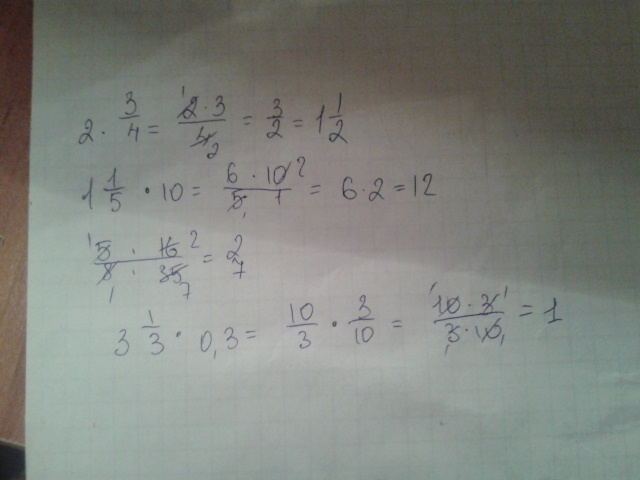 2 · 3/4 = 2 · 3/4 = 3/2 = 1 1/2
1 1/5 · 10 = 6 · 10/5 · 1 = 6 · 2 = 12
5 · 16/8 · 35 = 2/7
3 1/3 · 0,3 = 10/3 · 3/10 = 10 · 3/3 · 10 = 1